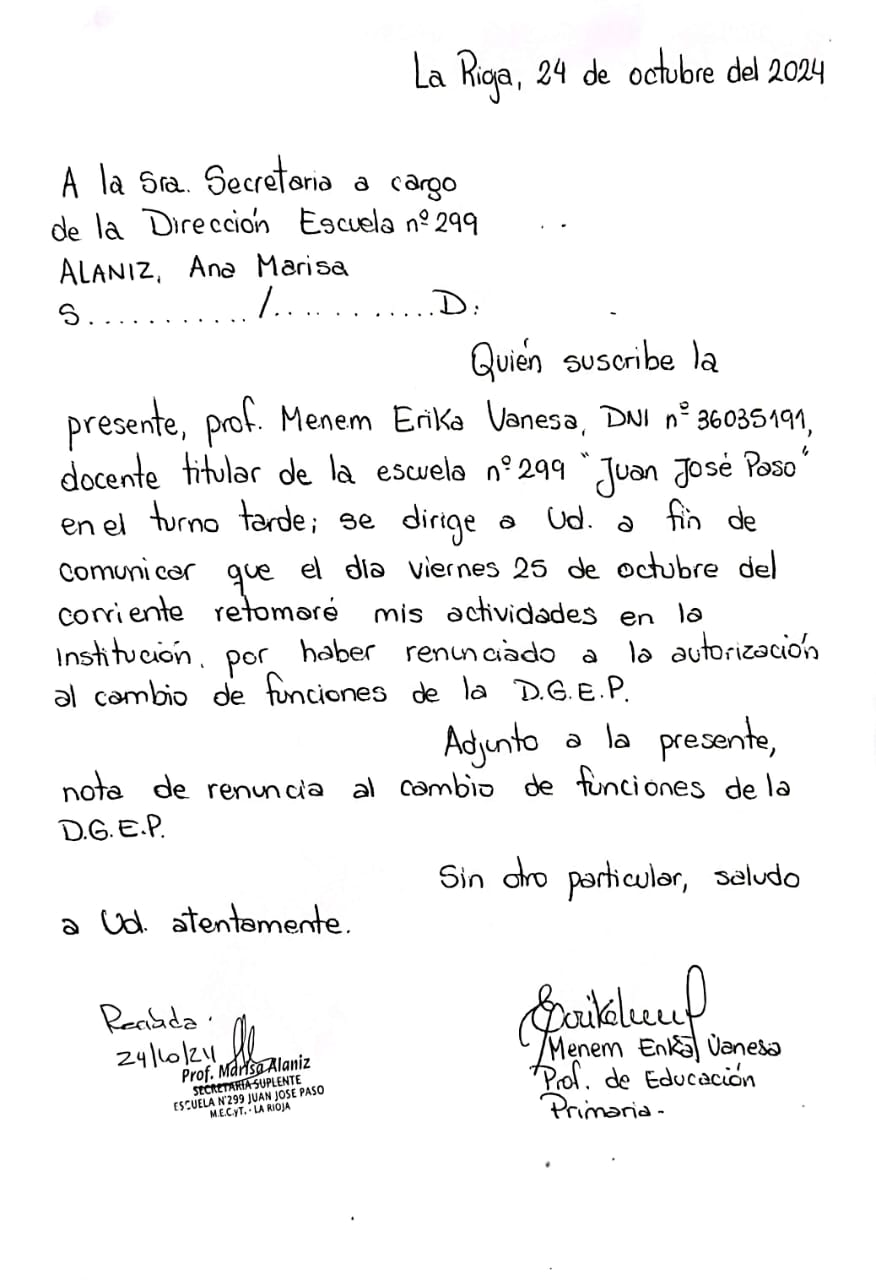 La Rioja, 24 de octubre del 2024
A la Sra. Secretaria a cargo
de la Dirección Escuela nº 299
ALANIZ, Ana Marisa
S............/............D.
Quién suscribe la
presente, prof. Menem Erika Vanesa, DNI nº 36035191,
docente titular de la escuela nº 299 "Juan José Paso"
en el turno tarde; se dirige a Ud. a fin de
comunicar que el día viernes 25 de octubre del
corriente retomaré mis actividades en la
Institución, por haber renunciado a la autorización
al cambio de funciones de la D.G.E.P.
Adjunto a la presente,
nota de renuncia al cambio de funciones de la
D.G.E.P.
Sin otro particular, saludo
a Ud. atentamente.
Recibida.
24/10/24
Prof. Marisa Alaniz
SECRETARIA SUPLENTE
ESCUELA N°299 JUAN JOSE PASO
M.E.C.yT. - LA RIOJA
Menem Erika Vanesa
Prof. de Educación
Primaria -